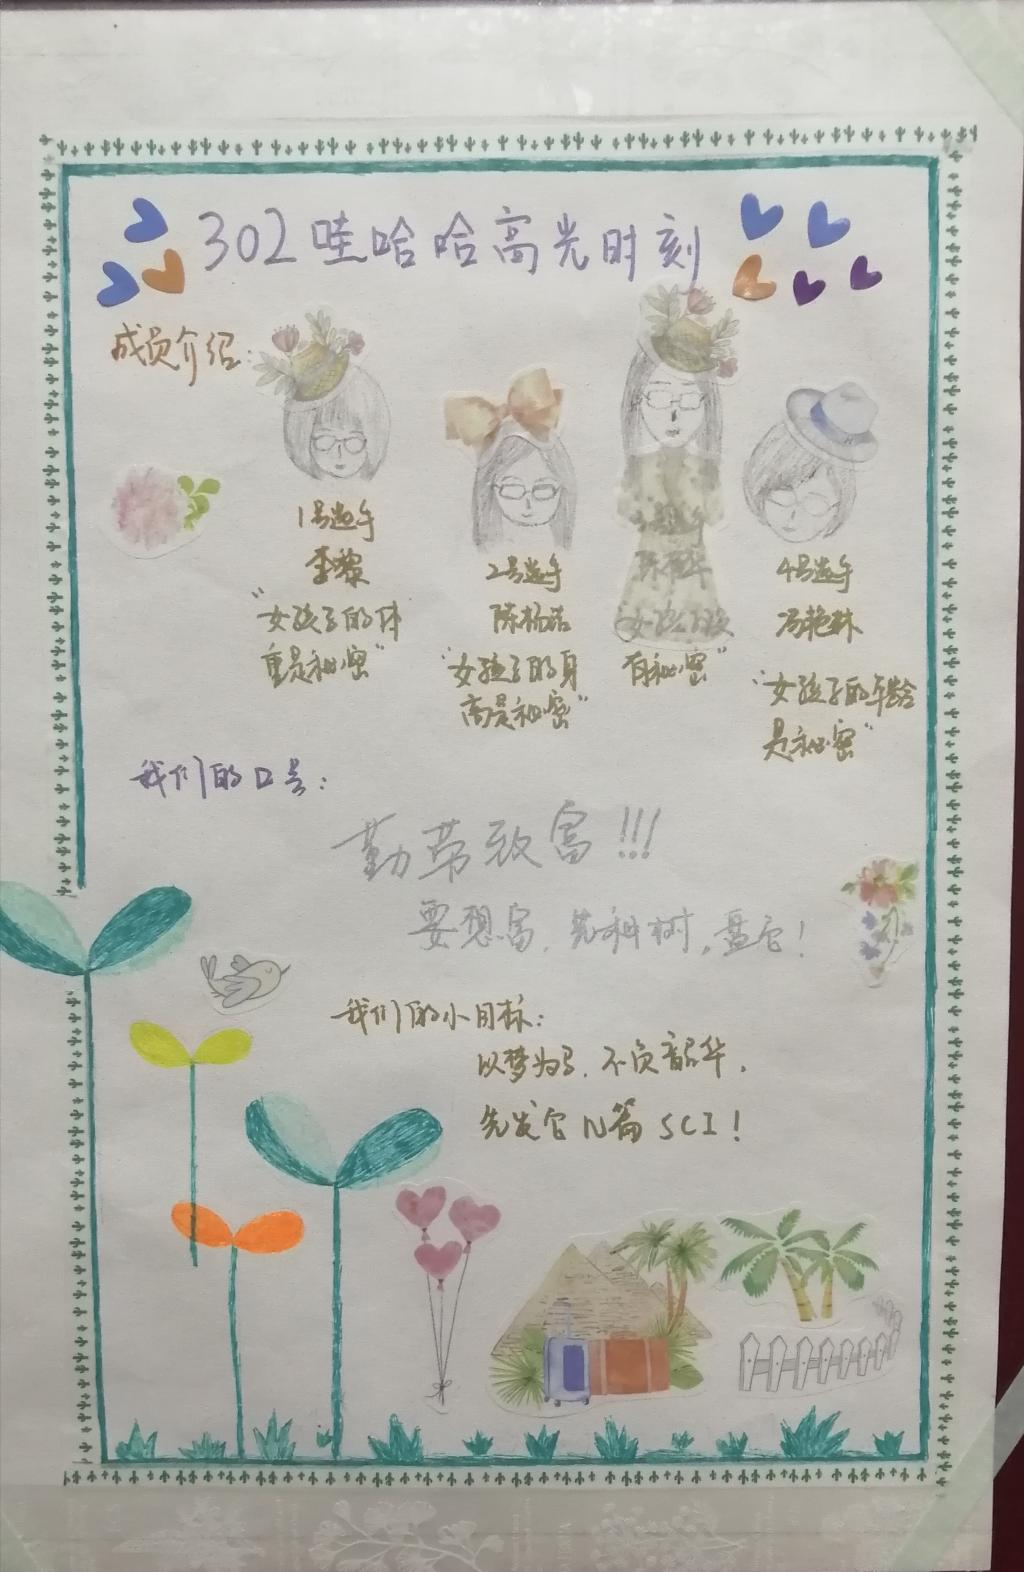 302哇哈哈高光时刻
成员介绍:
1号选手
李黎
"女孩子的体
重是秘密"
2号选手
陈杨洁
"女孩子的身
高是秘密"
号选手
陈
女孩子没
有秘密"
4号选手
冯艳林
"女孩子的年龄
是秘密"
我们的口号:
勤劳致富!!!
要想富,先种树,盘它!
我们的小目标:
以梦为马,不负韶华,
先发它N篇SCI!